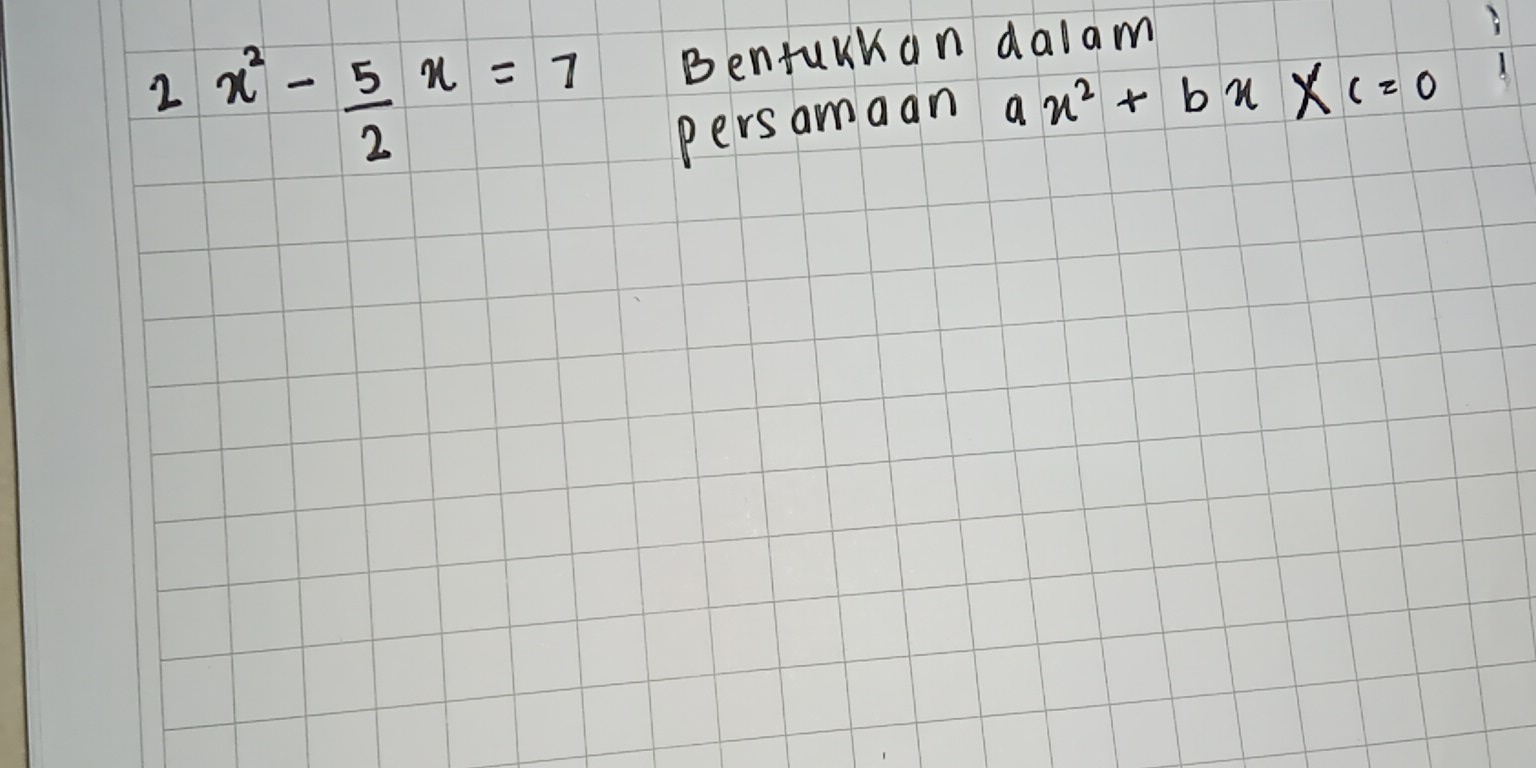 2 x² - 5/2 x = 7 Bentukkan dalam
persamaan ax² + bx X c = 0 !